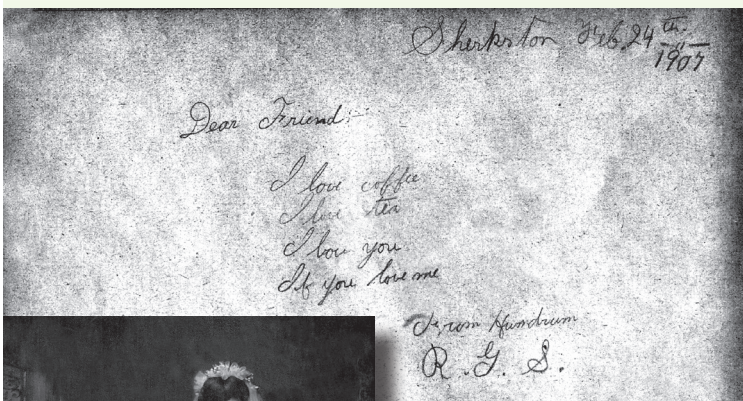 Sherkston Feb. 24th.
1907
Dear Friend:
I love coffee
I love tea
I love you
If you love me
From Humdrum
R. G. S.